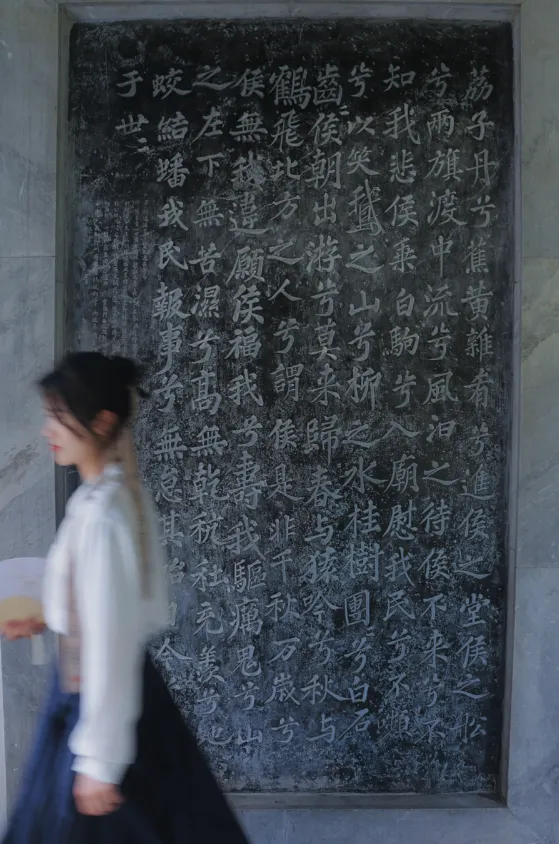 荔子丹兮蕉黃雜肴兮進侯之堂侯之船
兮兩旗渡中流兮風汩之待侯不來兮不
知我悲侯乘白駒兮入廟慰我民兮不嚬
兮以笑鵝之山兮柳之水桂樹團〻兮白石
齒〻侯朝出游兮莫來歸春与猿吟兮秋与
鶴飛北方之人兮謂侯是非千秋万歲兮
侯無我違願侯福我兮壽我驅癘鬼兮山
之左下無苦濕兮高無乾秔稌充羨兮虵
蛟結蟠我民報事兮無怠其始自今
于世〻